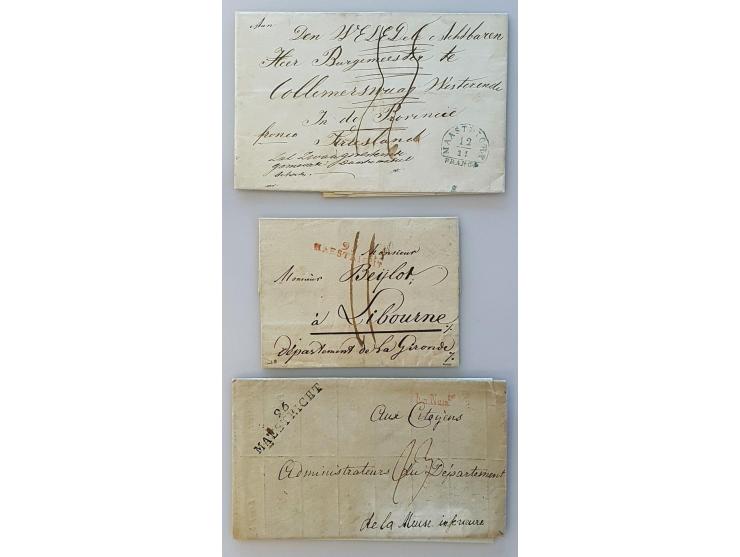 Aan
Den WELEd. Achtbaren
Heer Burgemeester te
Collemerswaag Westeeinde
In de Provincie
franco Friesland
MAASTRICHT
12
11
FRANCO
9
MAESTRICHT
Monsieur
Monsieur Beylot,
à Libourne
département de La Gironde
96
MAESTRICHT
aux Citoyens
administrateurs du Département
de la Meuse inferieure
23